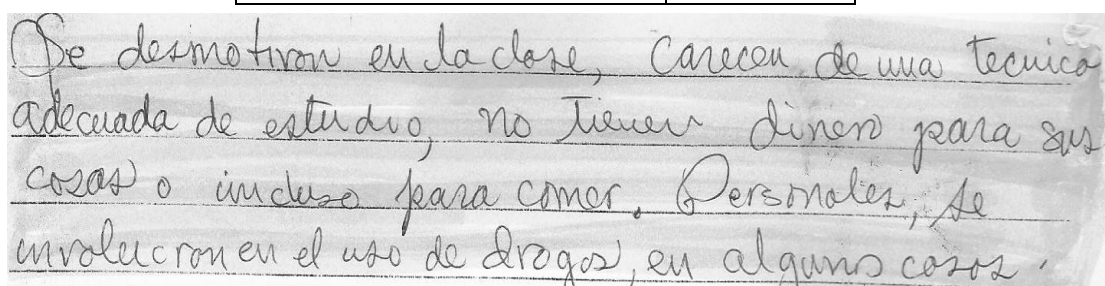 Se desmotivan en la clase, carecen de una tecnica
adecuada de estudio, no tienen dinero para sus
cosas o incluso para comer. Personales, se
involucran en el uso de drogas, en algunos casos.